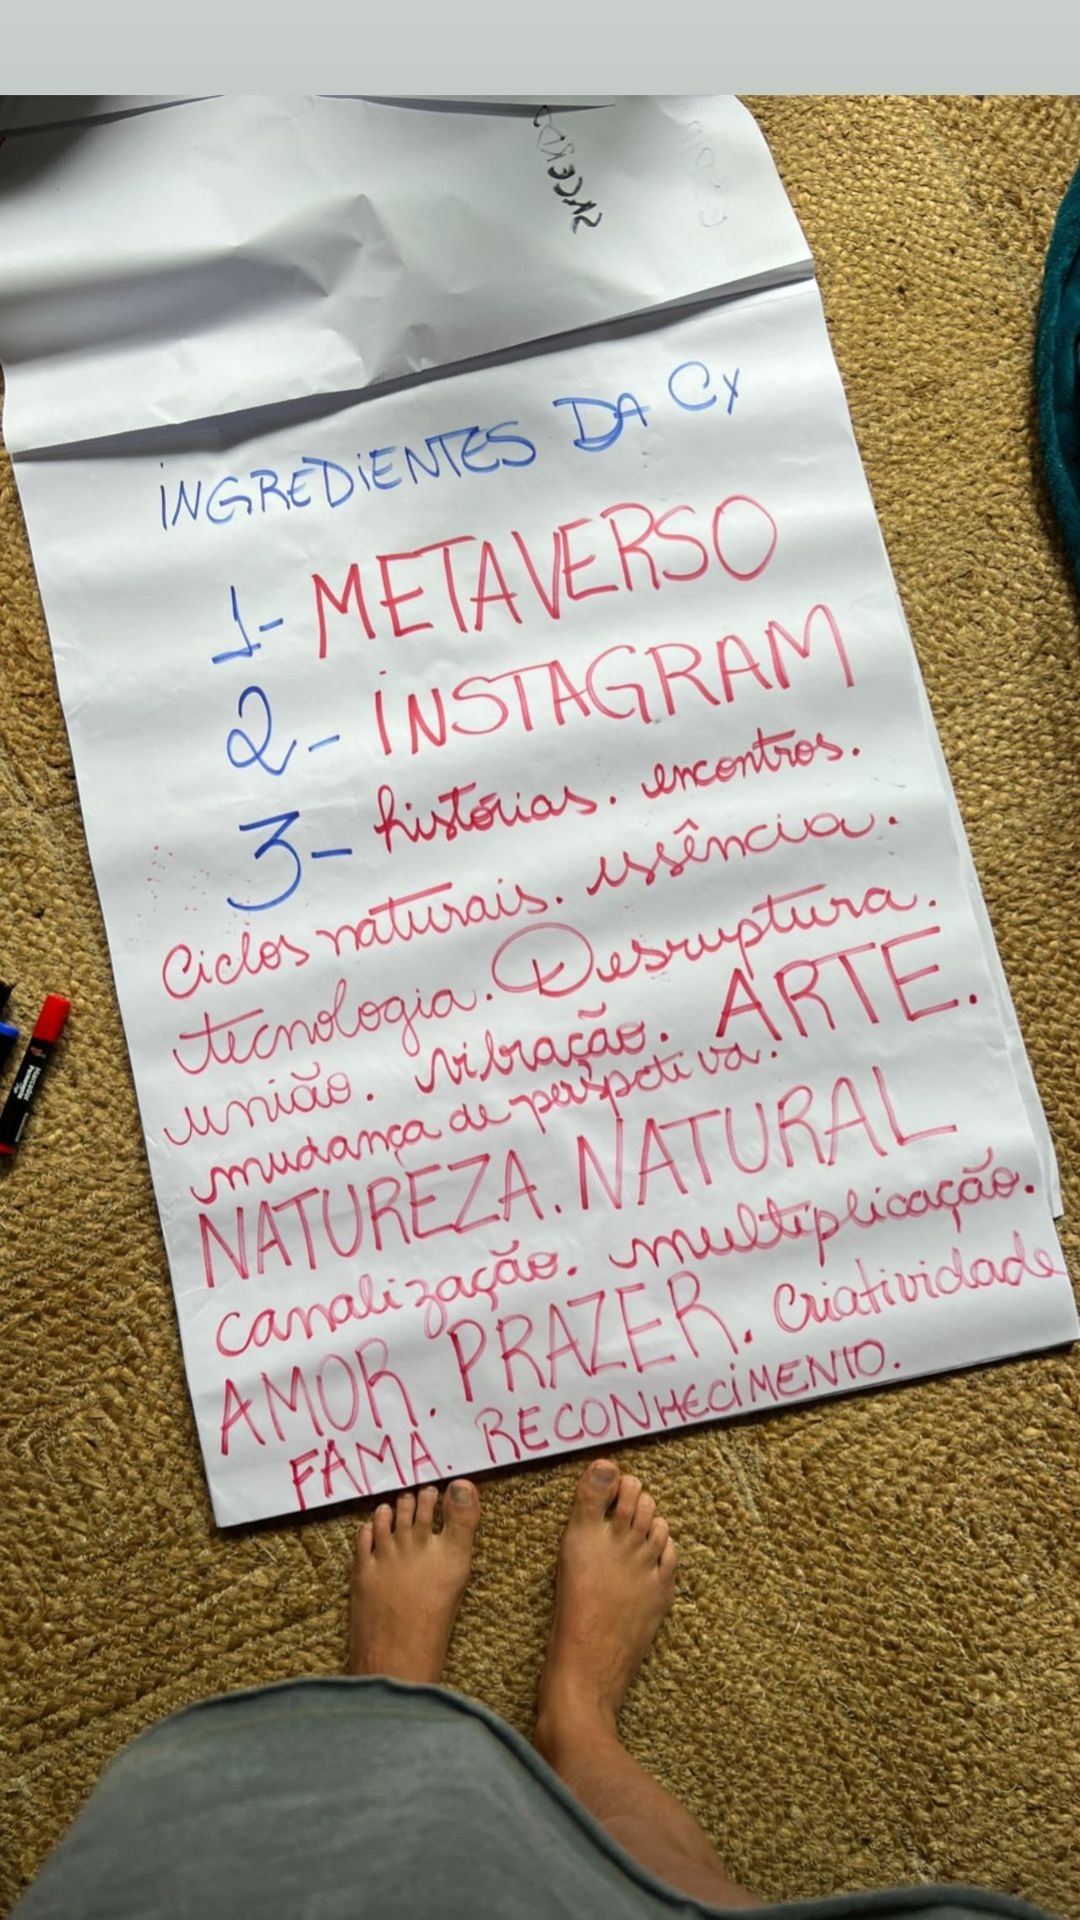 INGREDIENTES DA CX
1- METAVERSO
2- INSTAGRAM
3- histórias. encontros.
Ciclos naturais. essência.
tecnologia. Desruptura.
união. vibração. ARTE.
mudança de perspctiva.
NATUREZA. NATURAL
canalização. multiplicação.
AMOR. PRAZER. Criatividade
FAMA. RECONHECIMENTO.